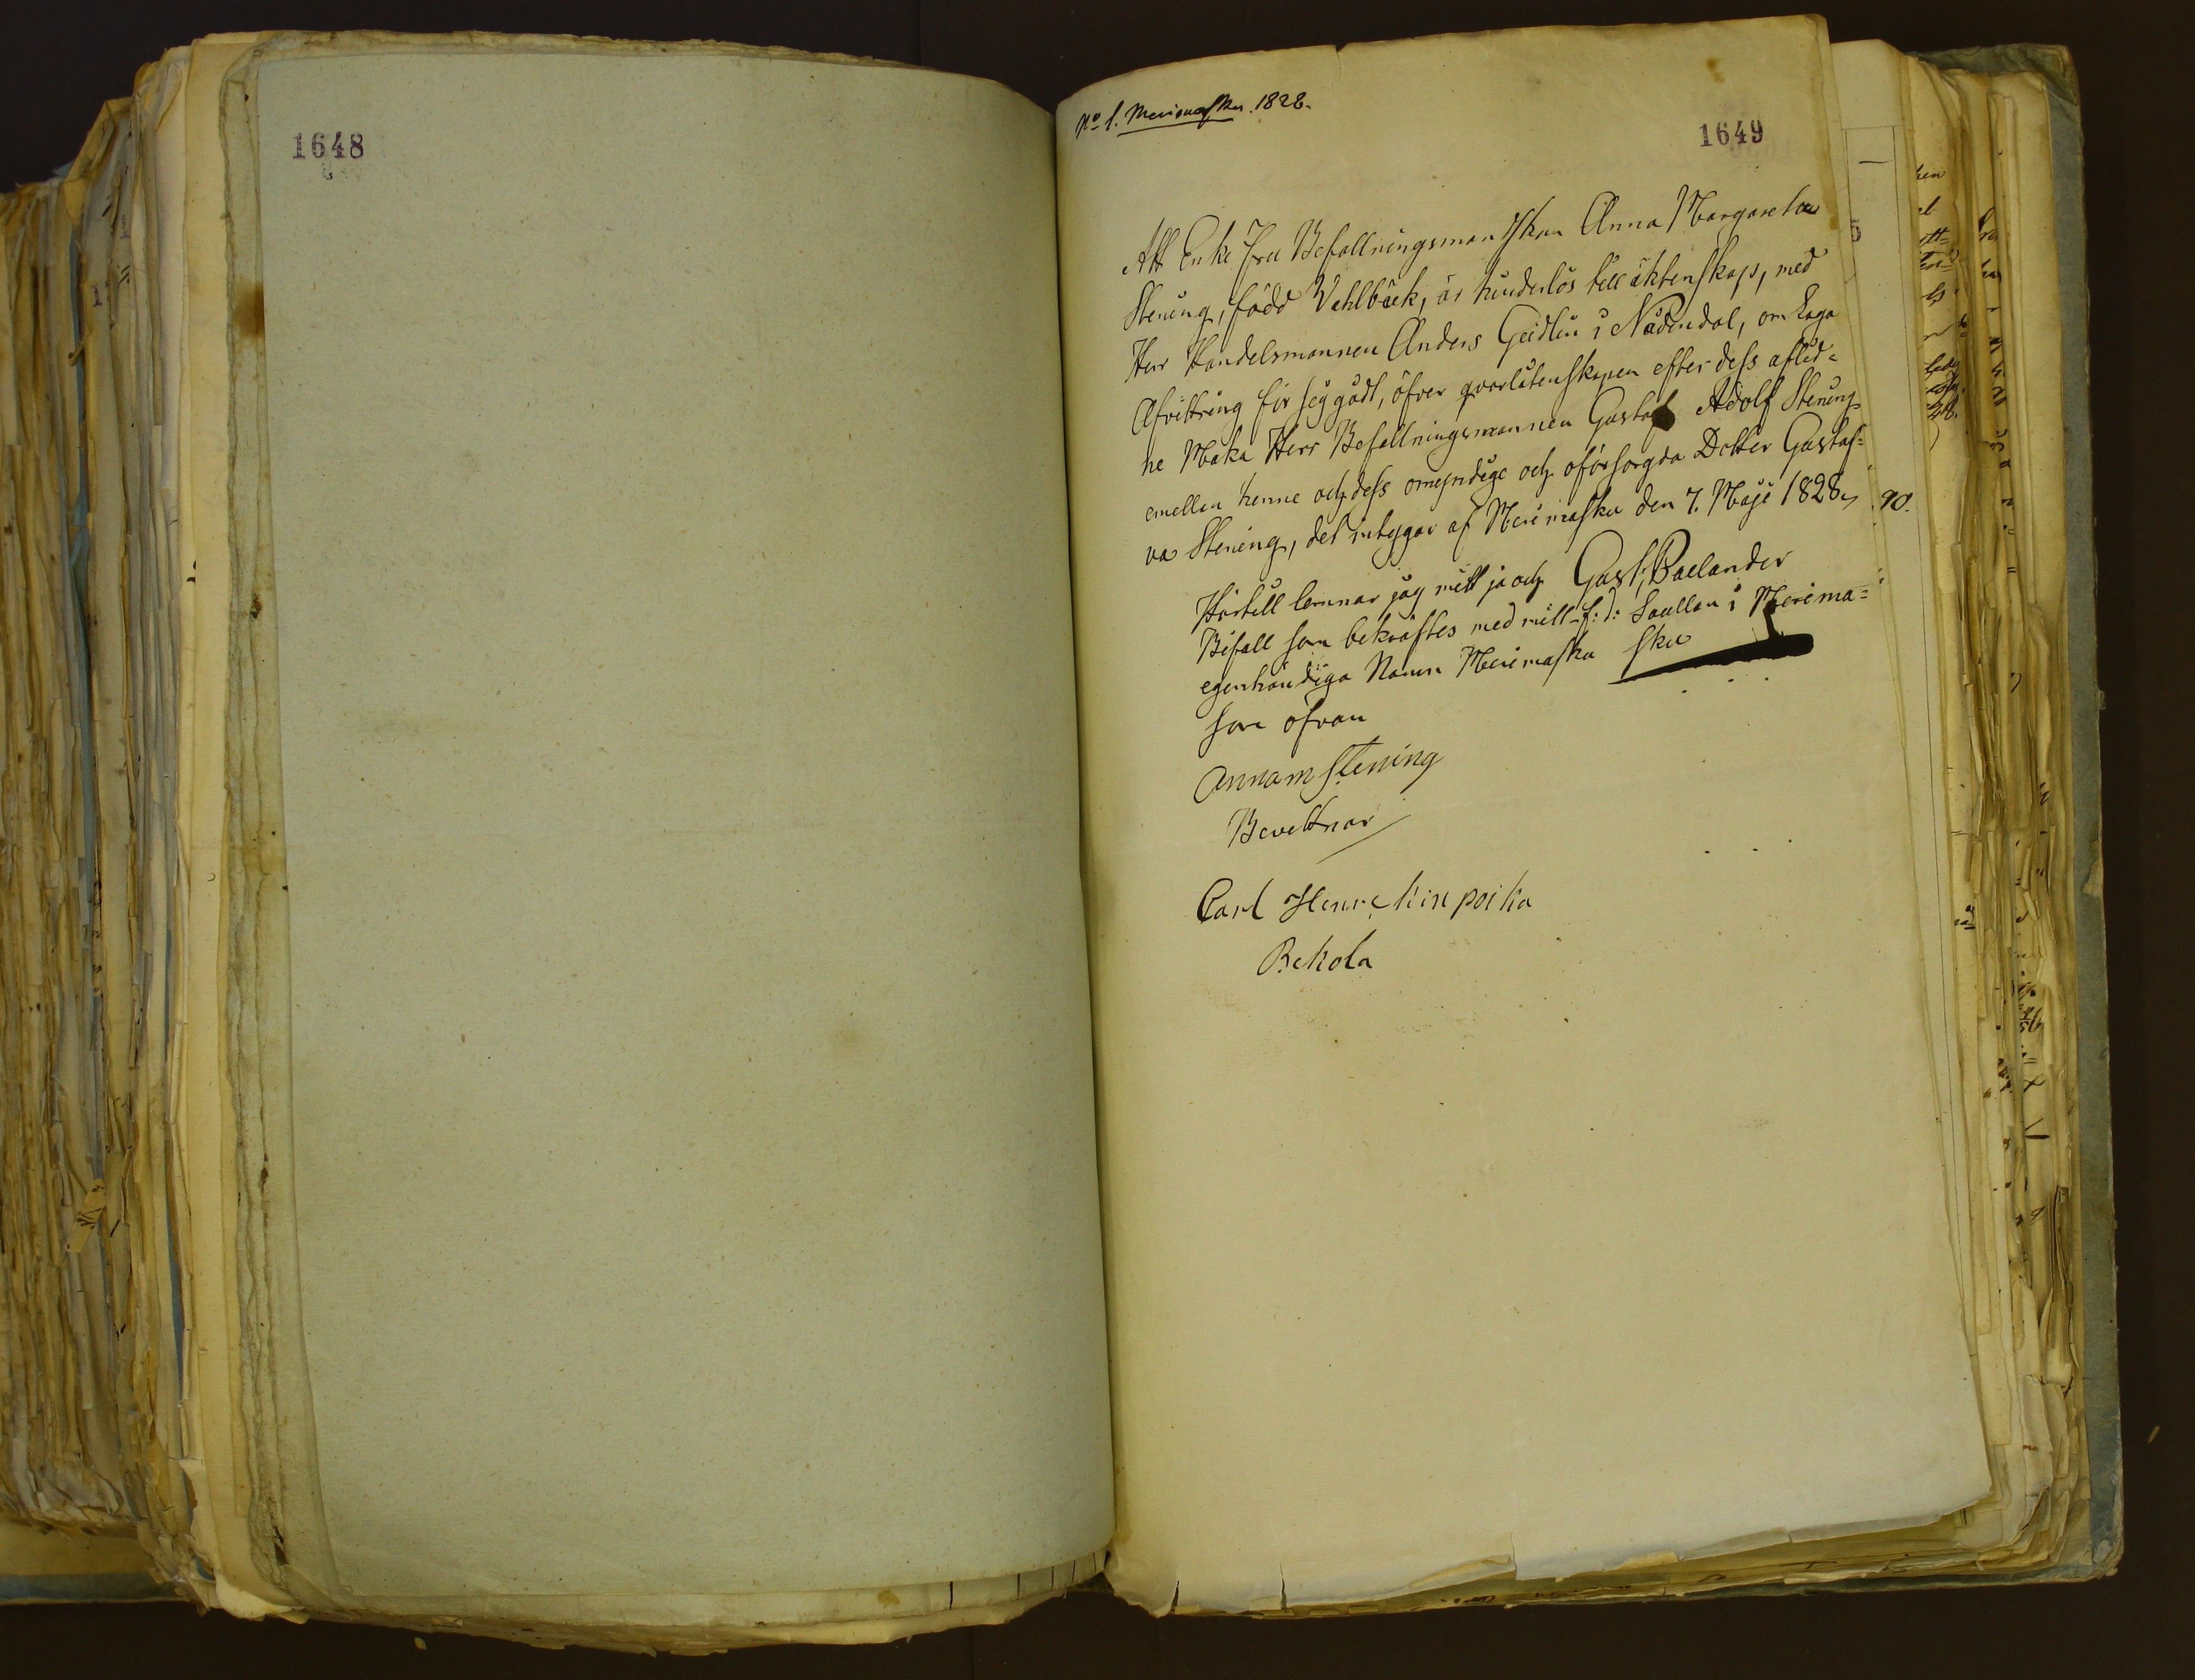 1648
No 1. Merimasku. 1828.
1649
Att Enke Fru Befallningsmanskan Anna Margareta
Stening, född Vehlbäck, är hinderlös till äktenskap, med
Herr Handelsmannen Anders Geidlin i Nådendal, om Laga
Afvittring för sig gådt, öfver qvarlåtenskapen efter dess aflid=
ne Maka Herr Befallningsmannen Gustaf Adolf Stening
emellan henne och dess omyndige och oförsorgda Dotter Gustaf=
va Stening, det intygar af Merimasku den 7. Maji 1828.
Härtill lemnar jag mitt ja och Gust. Baelander
Bifall som bekräftes med mitt f: d: Saellan i Merima=
egenhändiga Namn Merimasku sku
som ofvan
Anna m Stening
Bevittnar
Carl Henrekin poika
Rekola
90.